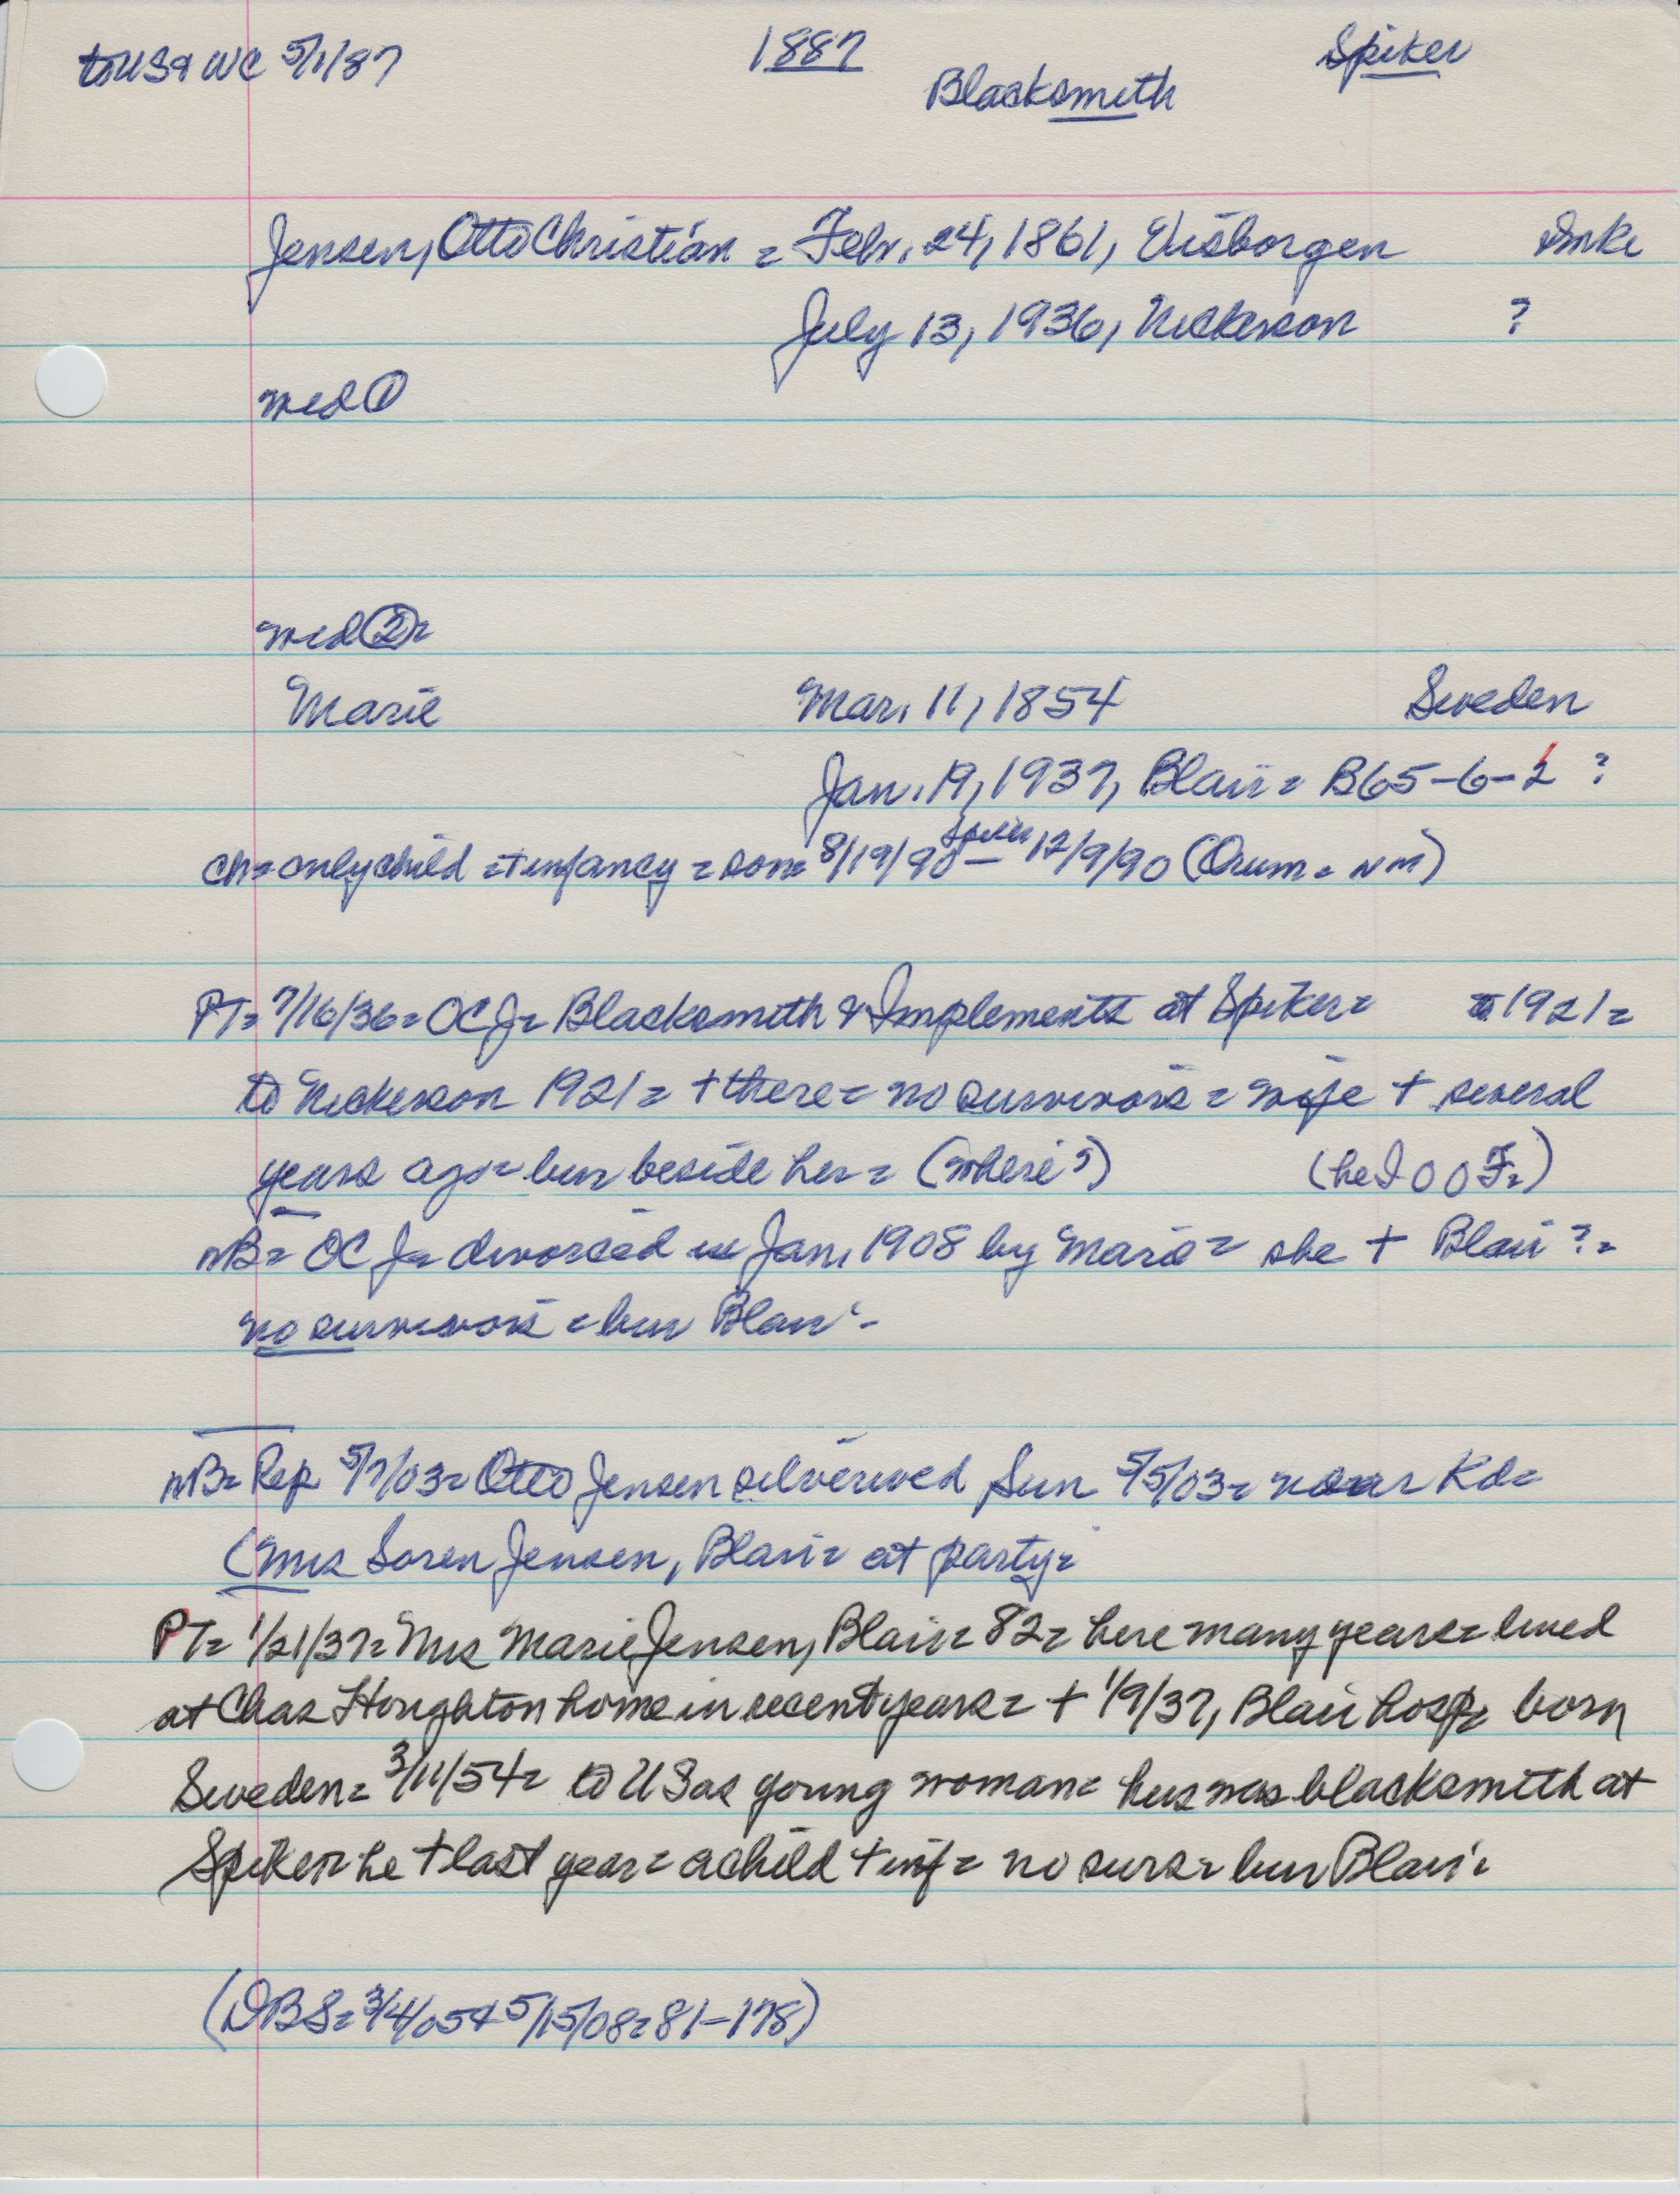 to USA WC 5/1/87 1887 Spiker
Blacksmith
Jensen, Otto Christian = Febr. 24, 1861, Visborgen Dmk
July 13, 1936, Nickerson ?
med ①
med ②=
Marie Mar. 11, 1854 Sweden
Jan. 19, 1937, Blair = B65-6-2 ?
ch = only child = + infancy = son = 8/19/90 Spiker — 12/9/90 (Orum = NM)
PT = 7/16/36 = OCJ = Blacksmith & Implements at Spiker = to 1921 =
to Nickerson 1921 = + there = no survivors = wife + several
years ago = bur beside her = (where?) (he IOOF =)
NB = OCJ = divorced in Jan, 1908 by Marie = she + Blair ? =
no survivors = bur Blair -
NB = Rep 5/7/03 = Otto Jensen silverwed Sun 5/5/03 = near Kd =
(Mrs Soren Jensen, Blair = at party =
PT = 1/21/37 = Mrs Marie Jensen, Blair = 82 = here many years = lived
at Chas Houghton home in recent years = + 1/9/37, Blair hosp = born
Sweden = 3/11/54 = to US as young woman = hus was blacksmith at
Spiker = he + last year = a child + inf = no surs = bur Blair =
(DBS = 3/4/05 & 5/15/08 = 81-178)